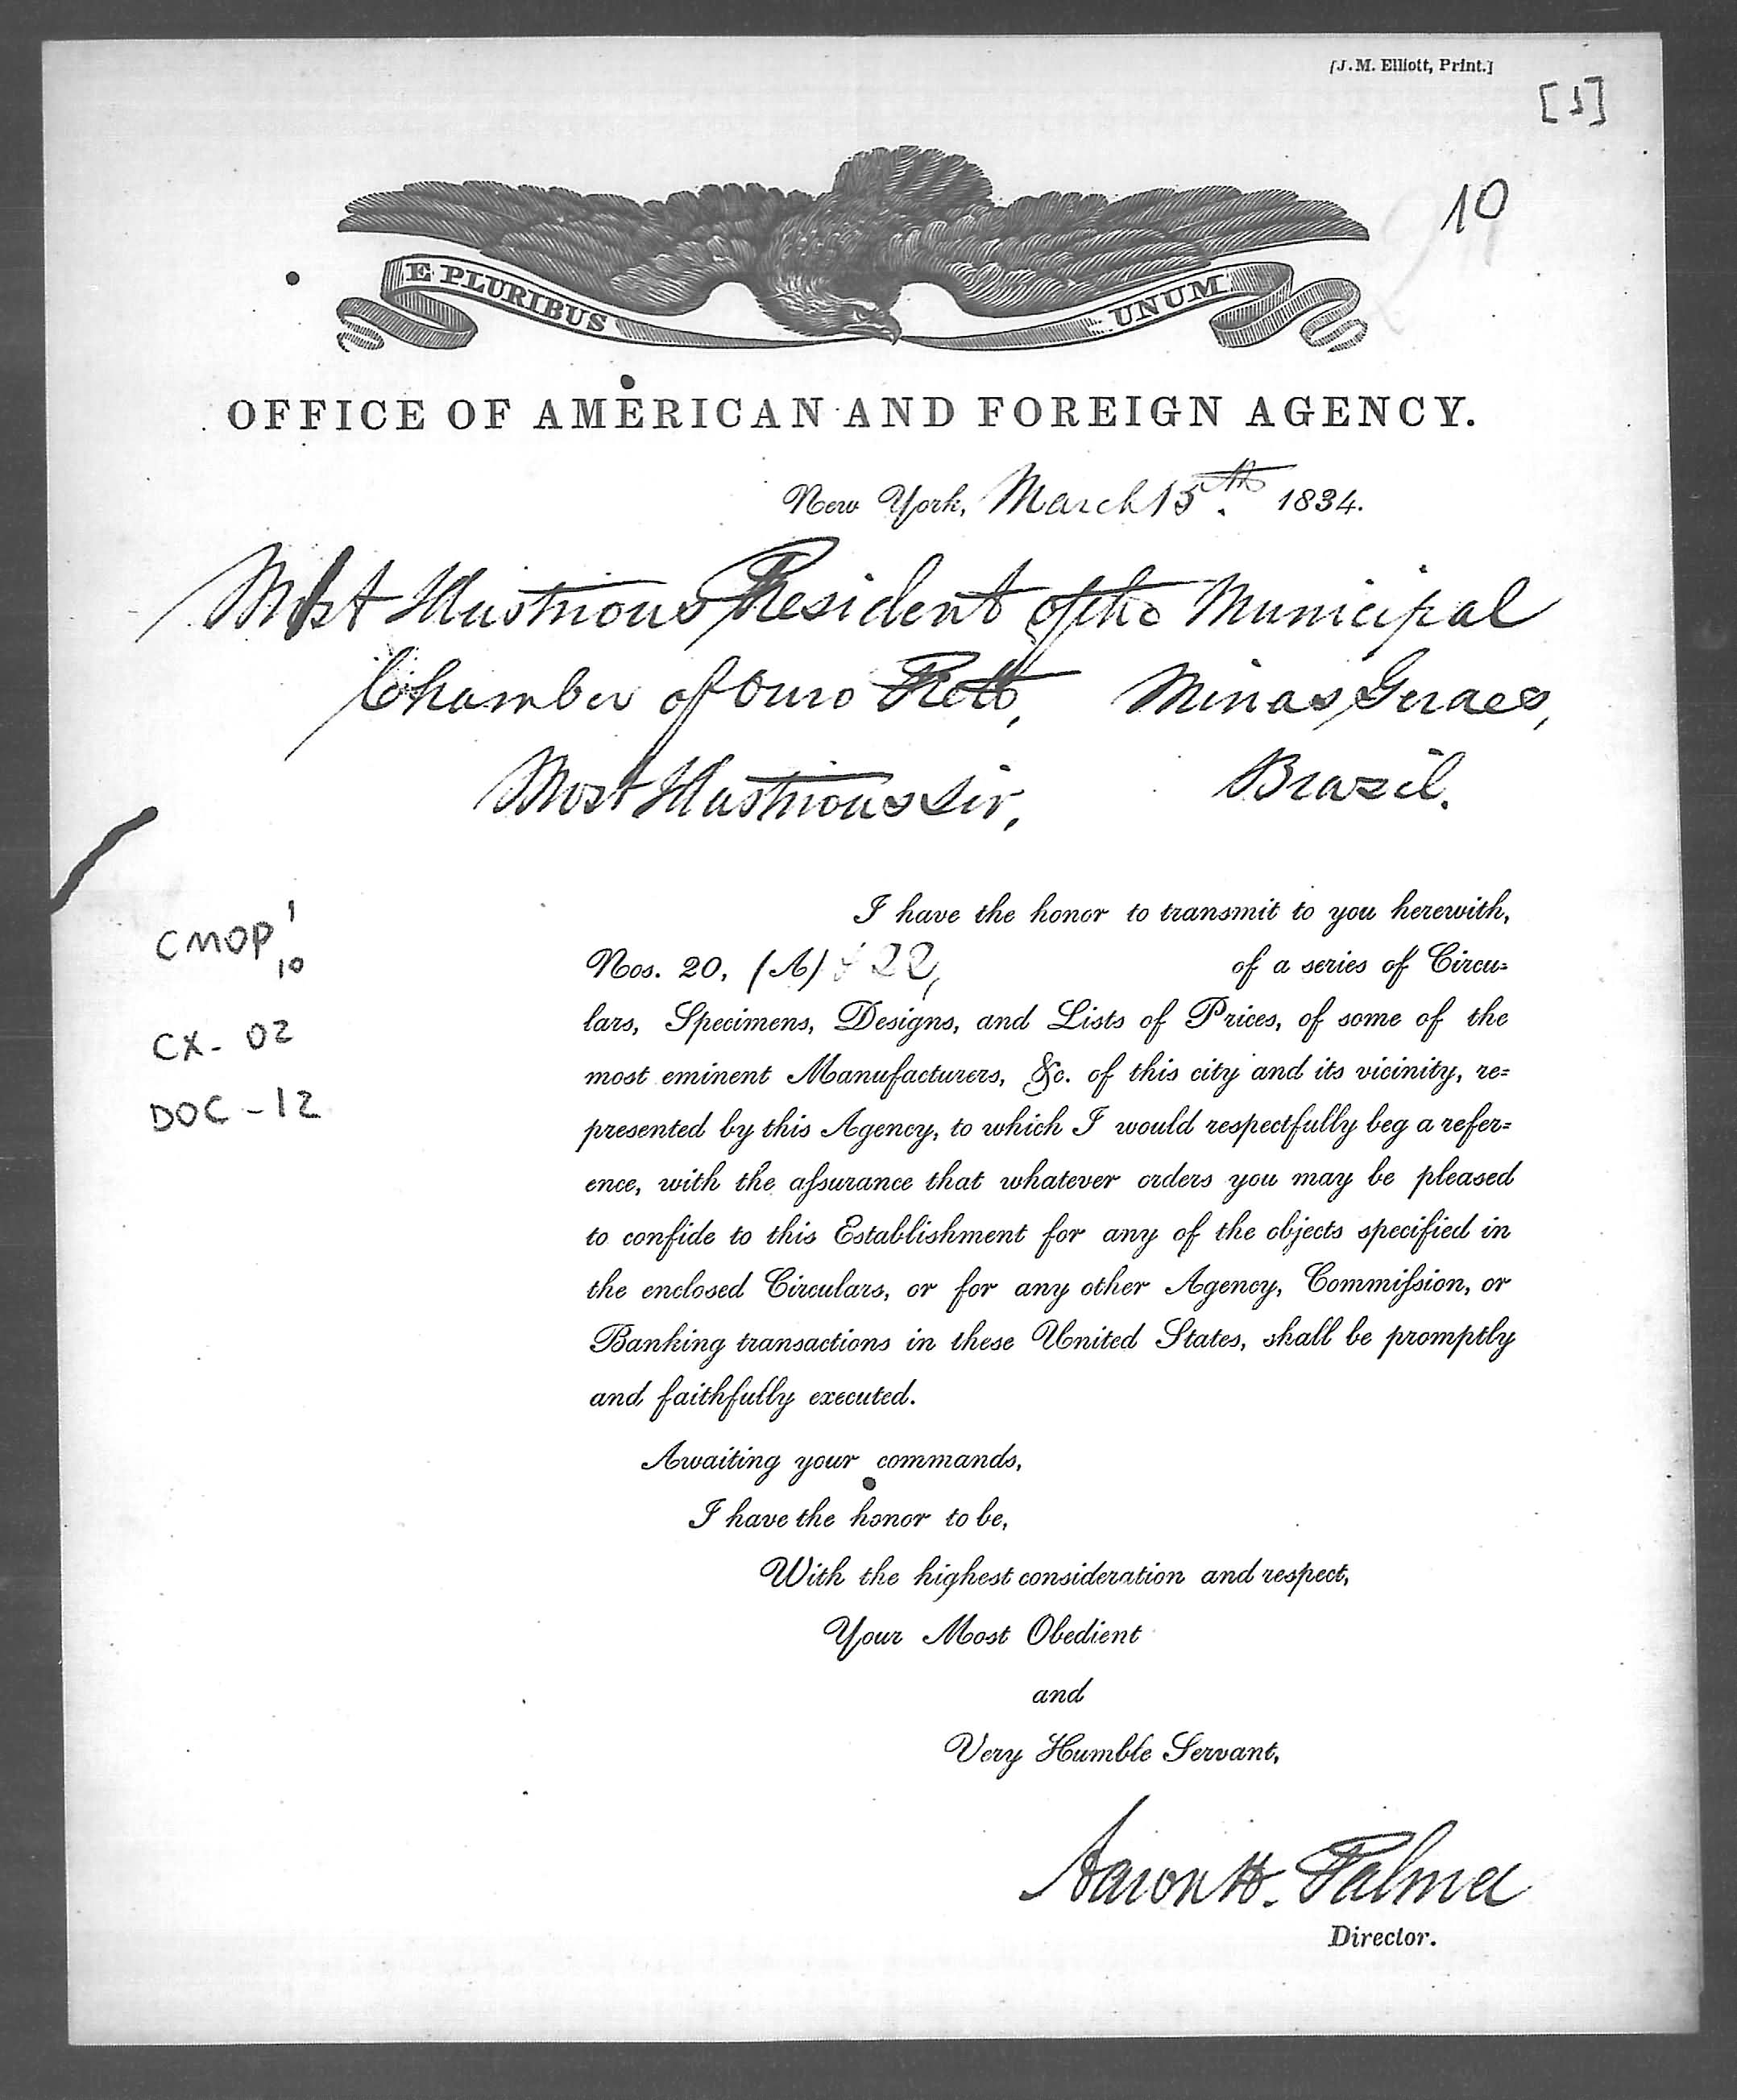 [J.M. Elliott, Print.]
[1]
10
E PLURIBUS UNUM
OFFICE OF AMERICAN AND FOREIGN AGENCY.
New York, March 15th. 1834.
Most Illustrious President of the Municipal
Chamber of Ouro Preto, Minas Geraes,
Most Illustrious Sir, Brazil.
I have the honor to transmit to you herewith,
CMOP 1
10
Nos. 20, (A) & 22, of a series of Circu=
lars, Specimens, Designs, and Lists of Prices, of some of the
CX- 02
most eminent Manufacturers, &c. of this city and its vicinity, re=
DOC - 12
presented by this Agency, to which I would respectfully beg a refer=
ence, with the aſsurance that whatever orders you may be pleased
to confide to this Establishment for any of the objects specified in
the enclosed Circulars, or for any other Agency, Commiſsion, or
Banking transactions in these United States, shall be promptly
and faithfully executed.
Awaiting your commands,
I have the honor to be,
With the highest consideration and respect,
Your Most Obedient
and
Very Humble Servant,
Aaron H. Palmer
Director.